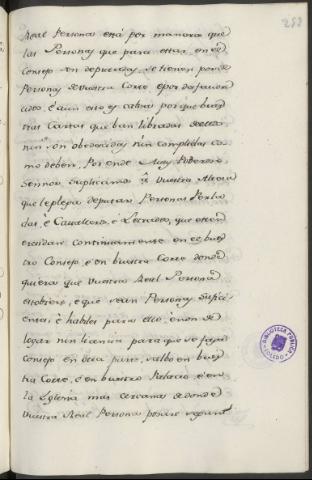 288
Real Persona está por manera que
las Personas que para estar en ese
Consejo son deputadas, se tienen por
Personas de vuestra Corte é por
é aun esto es causa porque bues
tras Cartas que ban libradas
nin son obedecidas nin complidas co
mo deben; Por ende Muy Poderoso
Sennor suplicamos á Vuestra Alteza
que le plega deputar Personas Perla
dos, é Cavalleros, é Letrados, que esten
é residan continuamente en el bues
tro Consejo é en buestra Corte donde
quiera que vuestra Real Persona
estobiere, é que sean Personas sufici
entes, é habiles para ello, é non de
legar nin licencia para que se faga
Consejo en otra parte, salbo en bues
tra Corte, é en buestro Palacio, é en
la Iglesia mas cercana de donde
vuestra Real Persona posare
BIBLIOTECA PUBLICA
TOLEDO